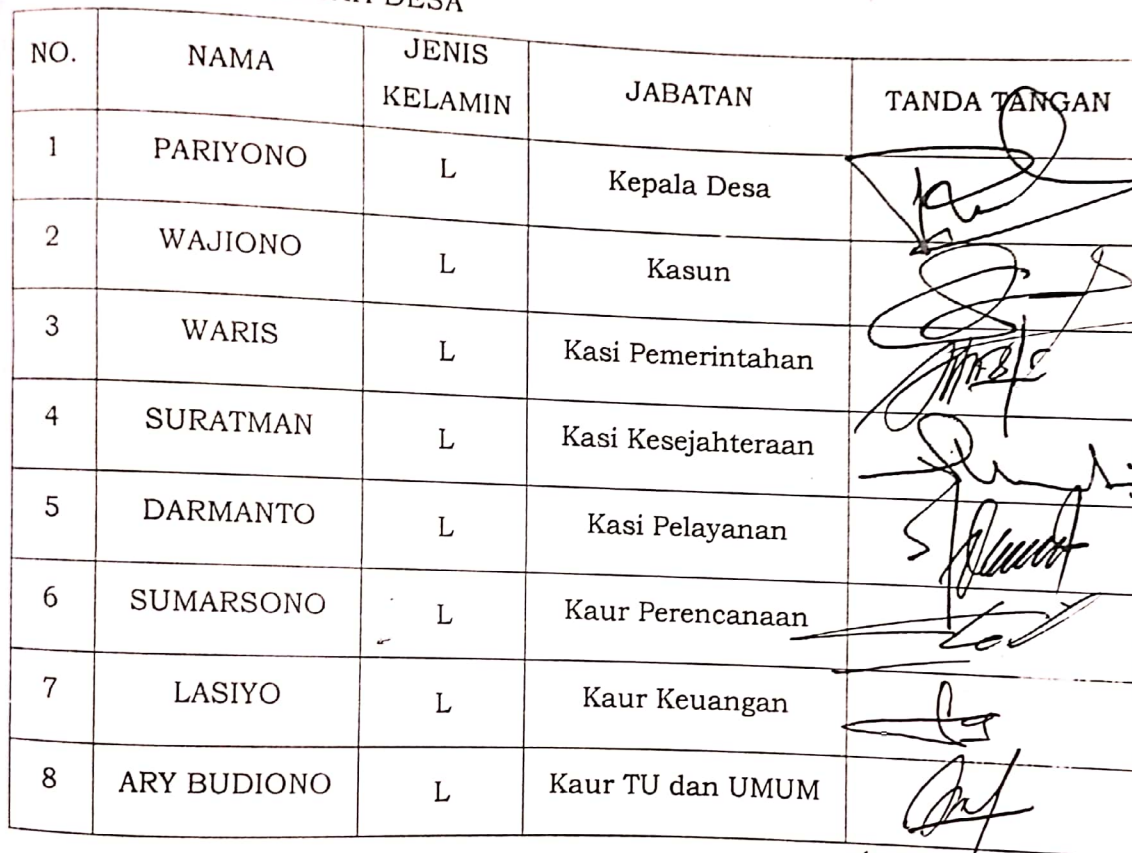 DESA
NO. NAMA JENIS KELAMIN JABATAN TANDA TANGAN
1 PARIYONO L Kepala Desa
2 WAJIONO L Kasun
3 WARIS L Kasi Pemerintahan
4 SURATMAN L Kasi Kesejahteraan
5 DARMANTO L Kasi Pelayanan
6 SUMARSONO L Kaur Perencanaan
7 LASIYO L Kaur Keuangan
8 ARY BUDIONO L Kaur TU dan UMUM